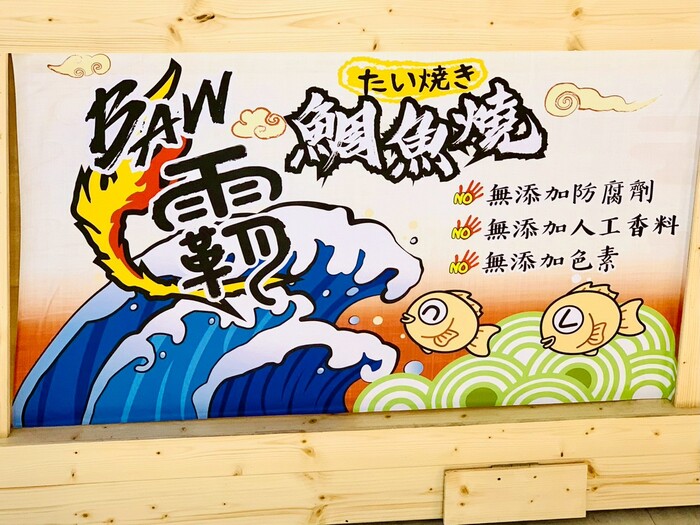 BAW
霸
たい焼き
鯛魚燒
NO 無添加防腐劑
NO 無添加人工香料
NO 無添加色素
つ
し